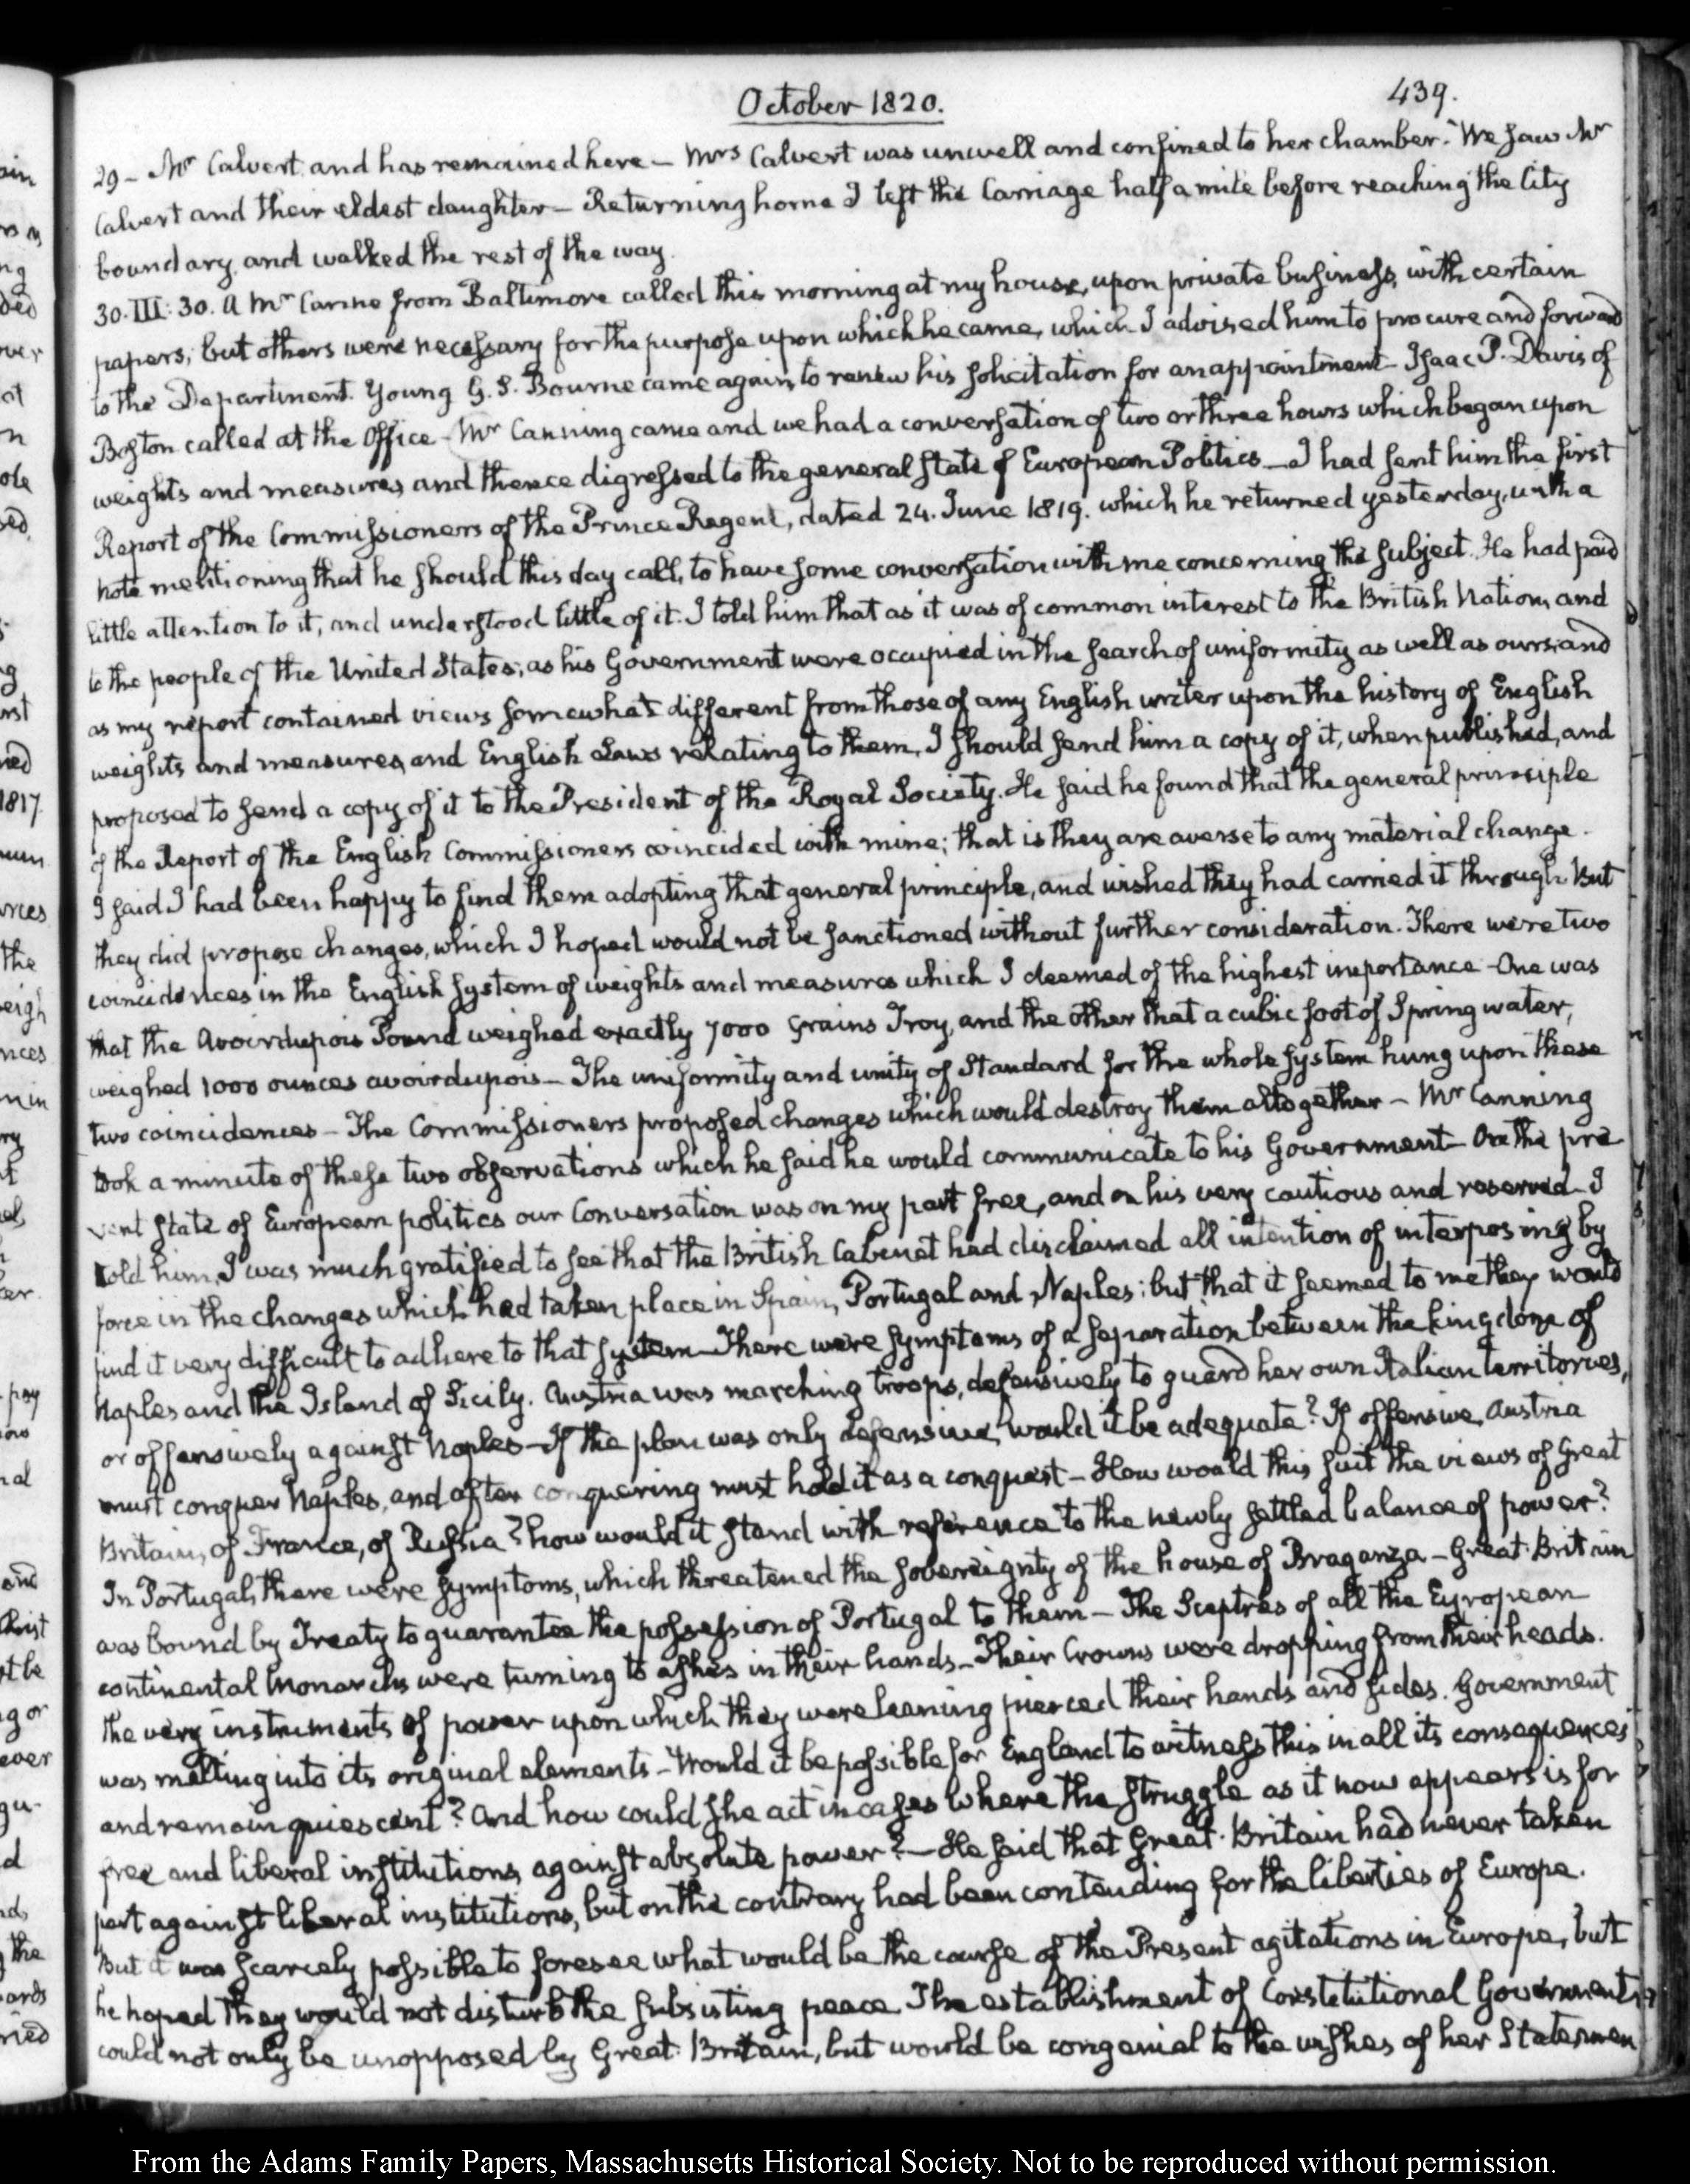 October 1820.
439.
29 - Mr Calvert and has remained here - Mrs Calvert was unwell and confined to her chamber. We saw Mr
Calvert and their eldest daughter - Returning home I left the Carriage half a mile before reaching the City
boundary and walked the rest of the way.
30. III: 30. A Mr from Baltimore called this morning at my house, upon private business, with certain
papers; but others were necessary for the purpose upon which he came, which I advised him to procure and forward
to the Department. Young G. S. Bourne came again to renew his solicitation for an appointment - Isaac P. Davis of
Boston called at the Office - Mr Canning came and we had a conversation of two or three hours which began upon
weights and measures, and thence digressed to the general State of European Politics - I had sent him the first
Report of the Commissioners of the Prince Regent, dated 24. June 1819. which he returned yesterday, with a
note mentioning that he should this day call, to have some conversation with me concerning the subject. He had paid
little attention to it, and understood little of it. I told him that as it was of common interest to the British Nation, and
to the people of the United States; as his Government were occupied in the search of uniformity as well as ours, and
as my report contained views somewhat different from those of any English writer upon the history of English
weights and measures, and English Laws relating to them, I should send him a copy of it, when published, and
proposed to send a copy of it to the President of the Royal Society. He said he found that the general principle
of the Report of the English Commissioners coincided with mine; that is they are averse to any material change.
I said I had been happy to find them adopting that general principle, and wished they had carried it through. But
they did propose changes, which I hoped would not be sanctioned without further consideration. There were two
coincidences in the English system of weights and measures which I deemed of the highest importance - One was
that the Avoirdupois Pound weighed exactly 7000 Grains Troy, and the other that a cubic foot of Spring water,
weighed 1000 ounces avoirdupois - The uniformity and unity of Standard for the whole system hung upon these
two coincidences - The Commissioners proposed changes which would destroy them altogether - Mr Canning
took a minute of these two observations which he said he would communicate to his Government - On the pre-
sent State of European politics our Conversation was on my part free, and on his very cautious and reserved - I
told him, I was much gratified to see that the British Cabinet had disclaimed all intention of interposing by
force in the changes which had taken place in Spain, Portugal and Naples; but that it seemed to me they would
find it very difficult to adhere to that system - There were symptoms of a separation between the kingdom of
Naples and the Island of Sicily. Austria was marching troops, defensively to guard her own Italian territories,
or offensively against Naples - If the plan was only defensive, would it be adequate? If offensive, Austria
must conquer Naples, and after conquering must hold it as a conquest - How would this suit the views of Great
Britain, of France, of Russia? how would it stand with reference to the newly settled balance of power?
In Portugal, there were symptoms, which threatened the sovereignty of the house of Braganza - Great-Britain
was bound by Treaty to guarantee the possession of Portugal to them - The Sceptres of all the European
continental Monarchs were turning to ashes in their hands - Their Crowns were dropping from their heads.
the very instruments of power upon which they were leaning pierced their hands and sides. Government
was melting into its original elements - Would it be possible for England to witness this in all its consequences
and remain quiescent? And how could she act in cases where the struggle as it now appears is for
free and liberal institutions, against absolute power? - He said that Great-Britain had never taken
part against liberal institutions, but on the contrary had been contending for the liberties of Europe.
But it was scarcely possible to foresee what would be the course of the Present agitations in Europe, but
he hoped they would not disturb the subsisting peace. The establishment of Constitutional Governments
could not only be unopposed by Great-Britain, but would be congenial to the wishes of her Statesmen
From the Adams Family Papers, Massachusetts Historical Society. Not to be reproduced without permission.